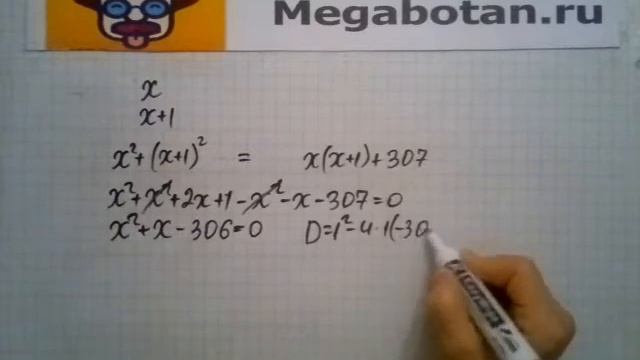 Megabotan.ru
x
x+1
x²+(x+1)² = x(x+1)+307
x²+x²+2x+1-x²-x-307=0
x²+x-306=0 D=1²-4·1(-30